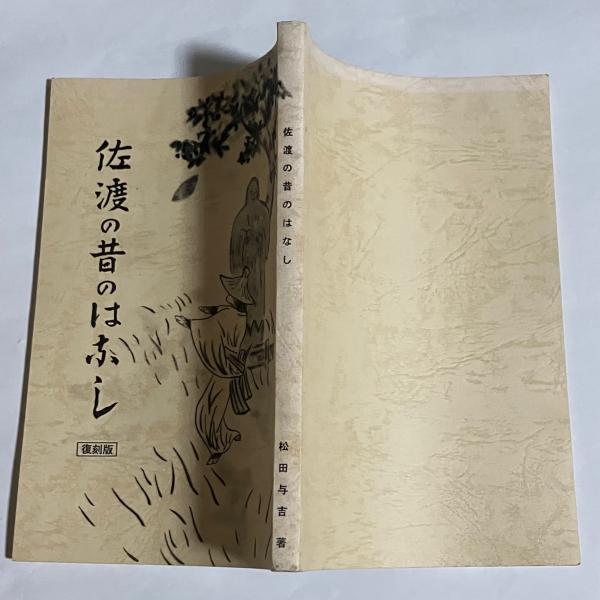 佐渡の昔のはなし
復刻版
佐渡の昔のはなし
松田与吉 著